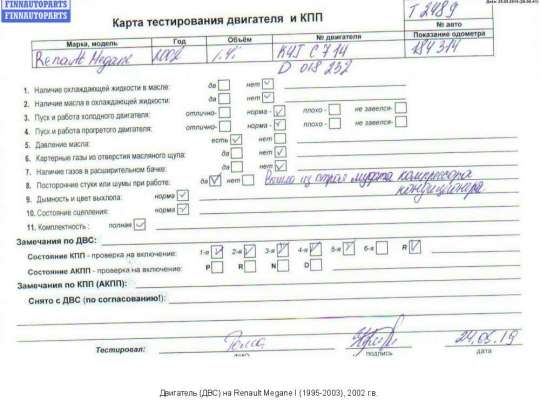 FINNAUTOPARTS
FINNAUTOPARTS
Карта тестирования двигателя и КПП
T 2489
№ авто
Марка, модель Год Объём № двигателя Показание одометра
Renault Megane 2002 1.4i K4J C 714 184314
D 018232
1. Наличие охлаждающей жидкости в масле: да нет
2. Наличие масла в охлаждающей жидкости: да нет
3. Пуск и работа холодного двигателя: отлично- норма - плохо - не завелся-
4. Пуск и работа прогретого двигателя: отлично- норма - плохо - не завелся-
5. Давление масла: есть нет
6. Картерные газы из отверстия масляного щупа: да нет
7. Наличие газов в расширительном бачке: да нет
8. Посторонние стуки или шумы при работе: да нет вышла из строя муфта компрессора
кондиционера
9. Дымность и цвет выхлопа: норма
10. Состояние сцепления: норма
11. Комплектность : полная
Замечания по ДВС:
Состояние КПП - проверка на включение: 1-я 2-я 3-я 4-я 5-я 6-я R
Состояние АКПП - проверка на включение: P R N D
Замечания по КПП (АКПП):
Снято с ДВС (по согласованию!):
Тестировал: 24.05.19
ФИО подпись дата
Двигатель (ДВС) на Renault Megane I (1995-2003), 2002 г.в.